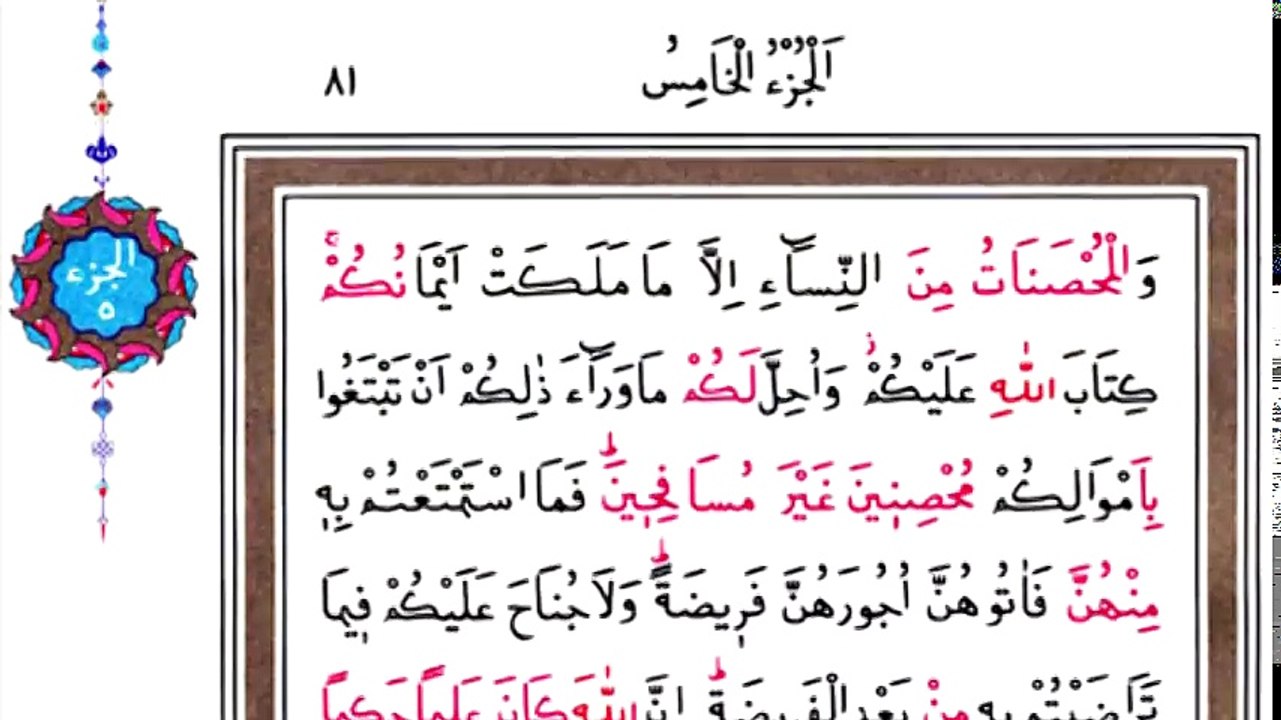 اَلْجُزْءُ الْخَامِسُ
٨١
الجزء
٥
وَالْمُحْصَنَاتُ مِنَ النِّسَٓاءِ اِلَّا مَا مَلَكَتْ اَيْمَانُكُمْۚ
كِتَابَ اللّٰهِ عَلَيْكُمْۚ وَاُحِلَّ لَكُمْ مَا وَرَٓاءَ ذٰلِكُمْ اَنْ تَبْتَغُوا
بِاَمْوَالِكُمْ مُحْصِنٖينَ غَيْرَ مُسَافِحٖينَۜ فَمَا اسْتَمْتَعْتُمْ بِهٖ
مِنْهُنَّ فَاٰتُوهُنَّ اُجُورَهُنَّ فَرٖيضَةًۜ وَلَا جُنَاحَ عَلَيْكُمْ فٖيمَا
تَرَاضَيْتُمْ بِهٖ مِنْ بَعْدِ الْفَرٖيضَةِۜ اِنَّ اللّٰهَ كَانَ عَلٖيمًا حَكٖيمًا